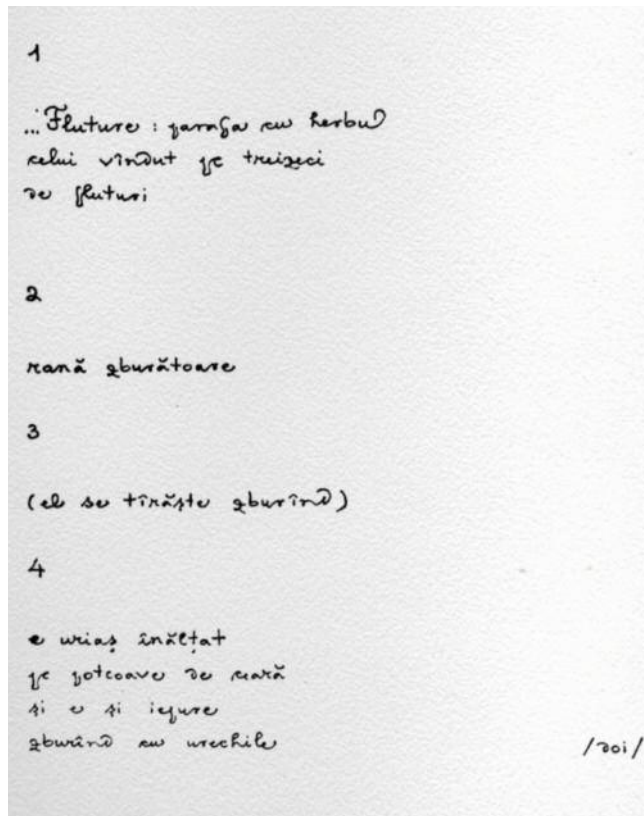 1
...Fluture : parafa cu herbul
celui vîndut pe treizeci
de fluturi
2
rană zburătoare
3
(el se tîrăște zburînd)
4
e uriaș înălțat
pe potcoave de ceară
și e și iepure
zburînd cu urechile
/doi/